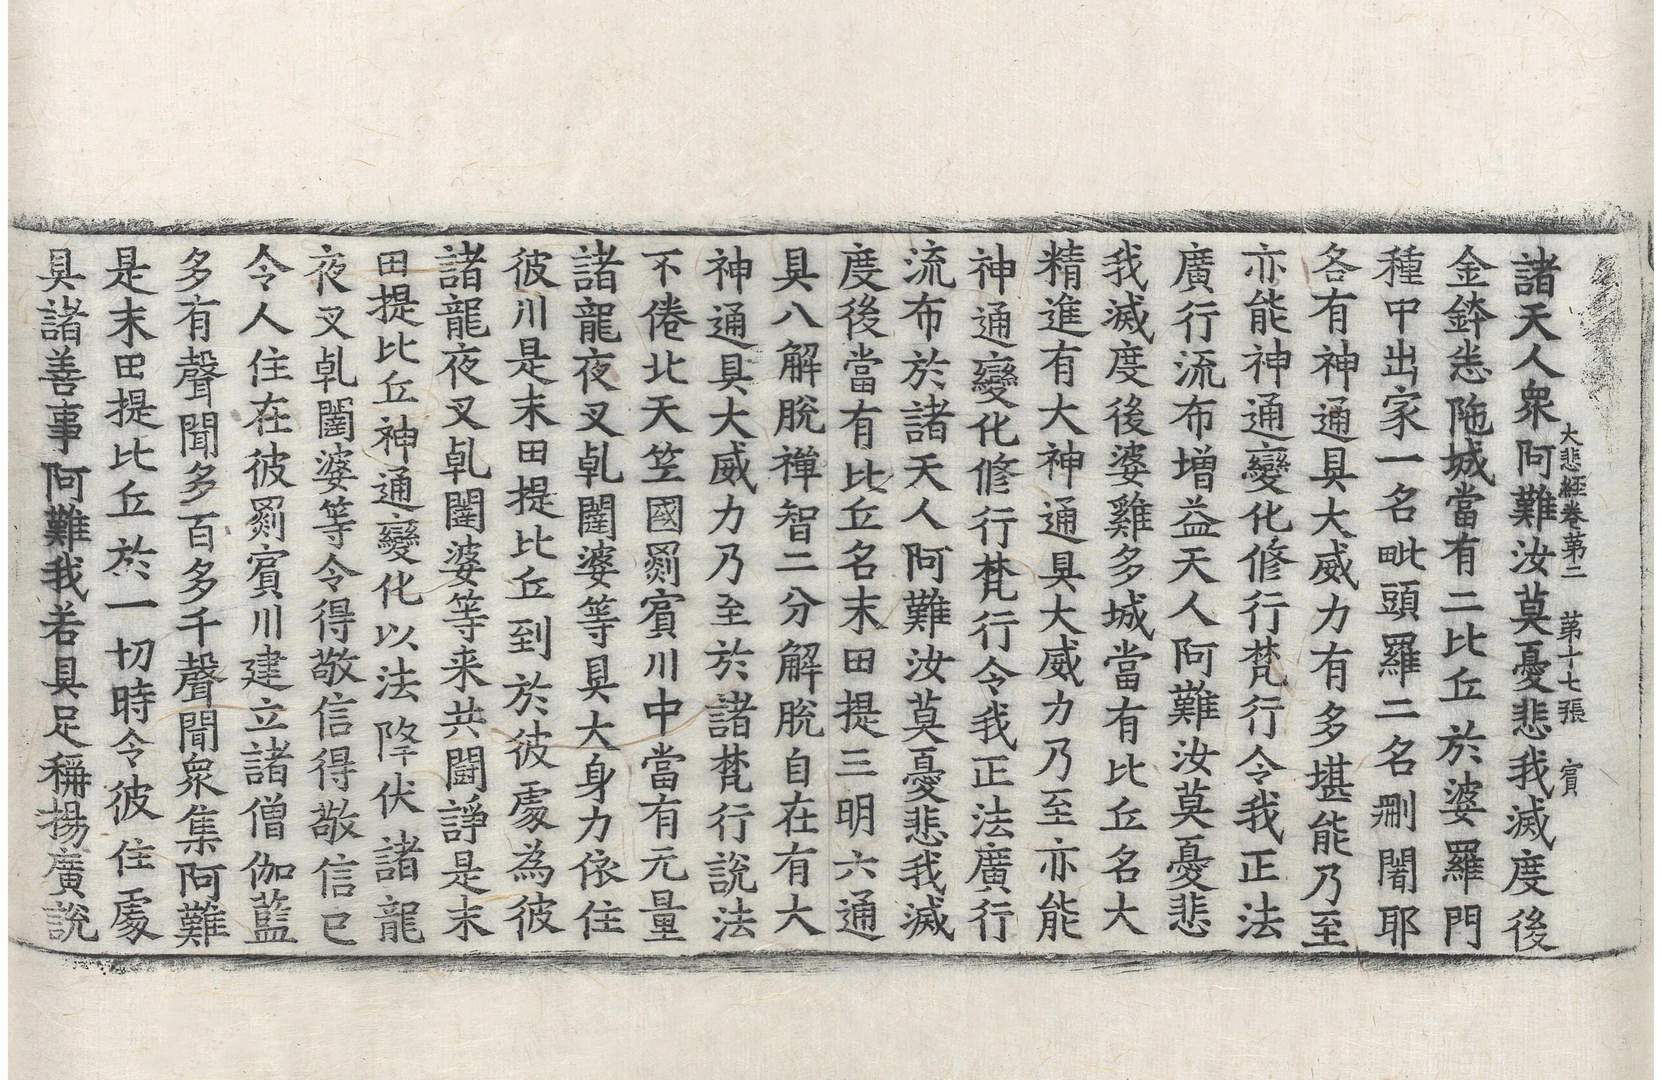 大悲經卷第二　第十七張　賓
諸天人衆阿難汝莫憂悲我滅度後
金鉾恙陁城當有二比丘於婆羅門
種中出家一名毗頭羅二名刪闍耶
各有神通具大威力有多堪能乃至
亦能神通變化修行梵行令我正法
廣行流布增益天人阿難汝莫憂悲
我滅度後婆雞多城當有比丘名大
精進有大神通具大威力乃至亦能
神通變化修行梵行令我正法廣行
流布於諸天人阿難汝莫憂悲我滅
度後當有比丘名末田提三明六通
具八解脫禪智二分解脫自在有大
神通具大威力乃至於諸梵行說法
不倦北天竺國罽賓川中當有元量
諸龍夜叉乹闥婆等具大身力依住
彼川是末田提比丘到於彼處為彼
諸龍夜叉乹闥婆等来共闘諍是末
田提比丘神通變化以法降伏諸龍
夜叉乹闥婆等令得敬信得敬信已
令人住在彼罽賓川建立諸僧伽藍
多有聲聞多百多千聲聞衆集阿難
是末田提比丘於一切時令彼住處
具諸善事阿難我若具足稱揚廣說